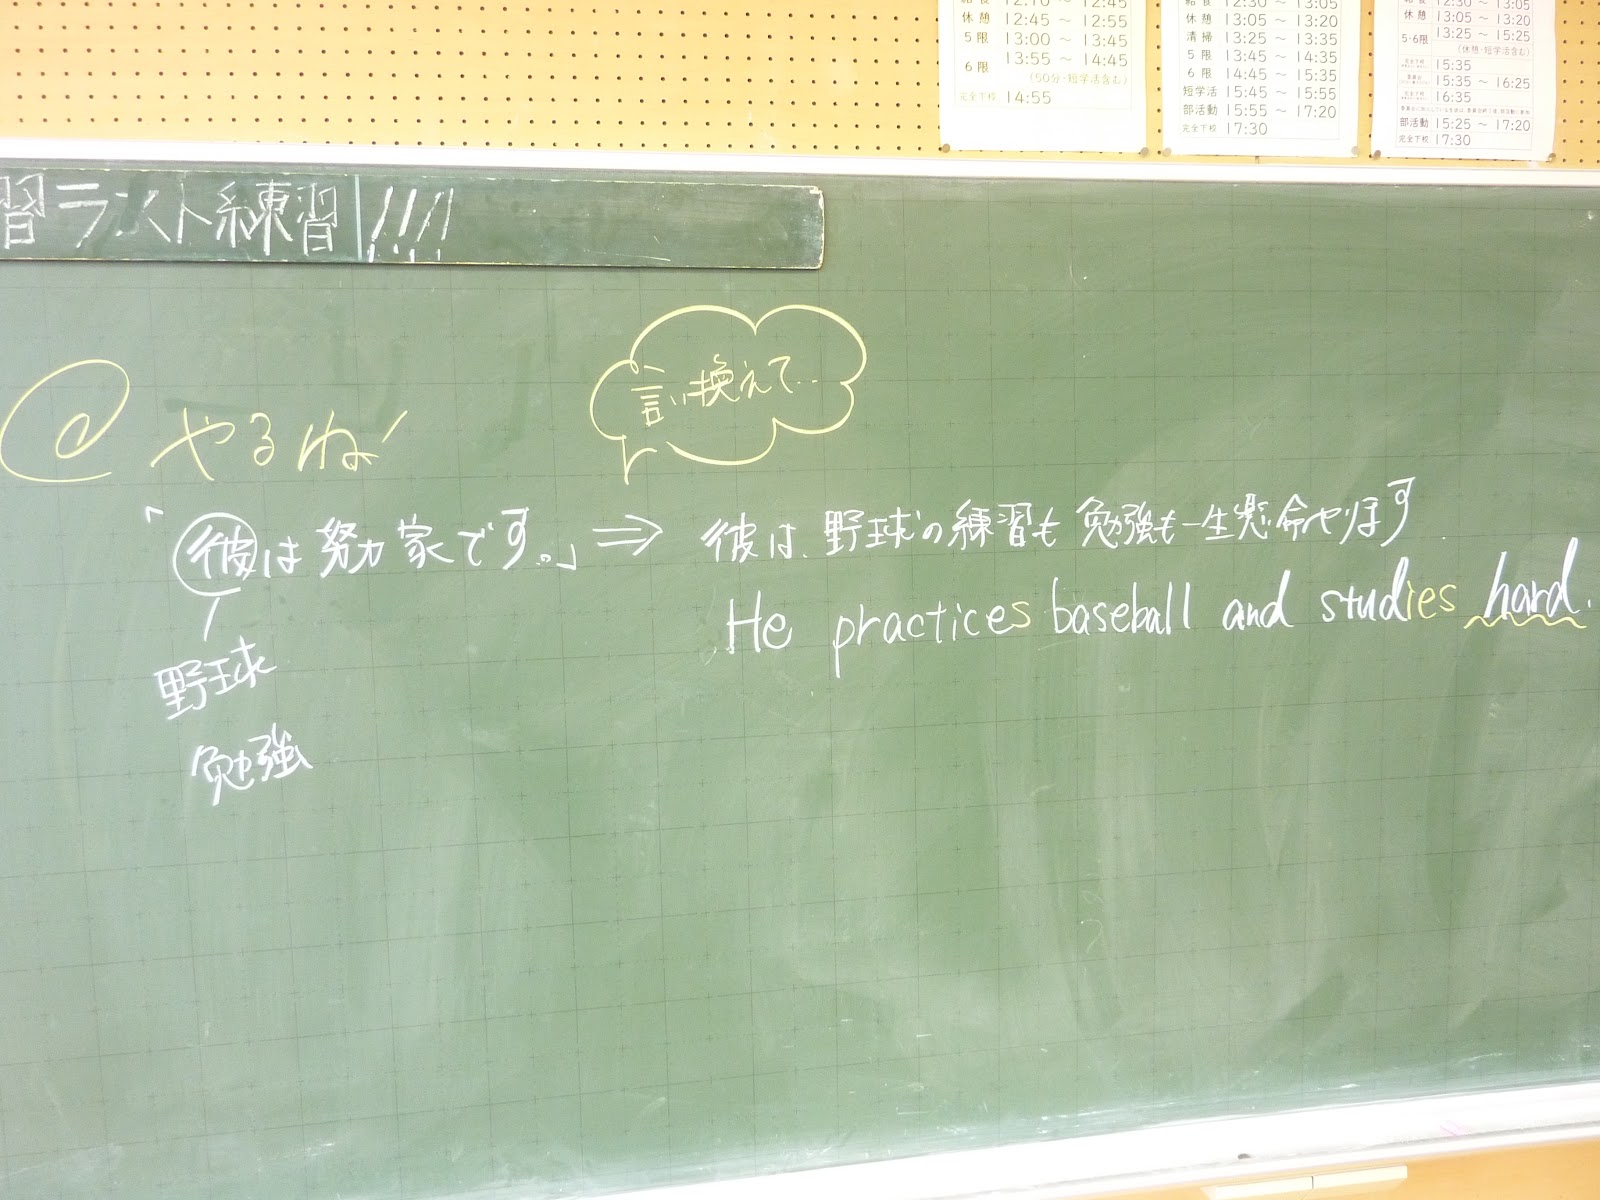 12:10 ～ 12:45
休憩 12:45 ～ 12:55
5限 13:00 ～ 13:45
6限 13:55 ～ 14:45
(50分・短学活含む)
完全下校 14:55
給食 12:30 ～ 13:05
休憩 13:05 ～ 13:20
清掃 13:25 ～ 13:35
5限 13:45 ～ 14:35
6限 14:45 ～ 15:35
短学活 15:45 ～ 15:55
部活動 15:55 ～ 17:20
完全下校 17:30
12:30 ～ 13:05
休憩 13:05 ～ 13:20
5・6限 13:25 ～ 15:25
(休憩・短学活含む)
完全下校 15:35
15:35 ～ 16:25
完全下校 16:35
部活動 15:25 ～ 17:20
完全下校 17:30
習ラスト練習!!!!
@やるね!
言い換えて…
「彼は努力家です。」⇒彼は、野球の練習も勉強も一生懸命やります
He practices baseball and studies hard.
野球
勉強